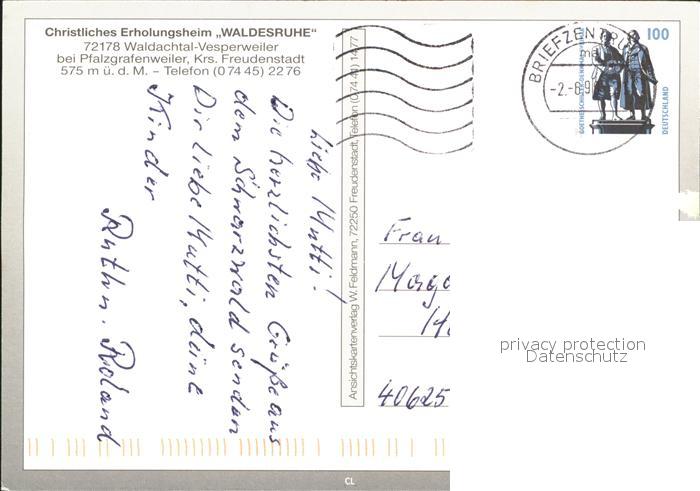 Christliches Erholungsheim „WALDESRUHE"
72178 Waldachtal-Vesperweiler
bei Pfalzgrafenweiler, Krs. Freudenstadt
575 m ü. d. M. – Telefon (0 74 45) 22 76
Liebe Mutti!
Die herzlichsten Grüße aus
dem Schwarzwald senden
Dir liebe Mutti, deine
Kinder
Ruth u. Roland
Ansichtskartenverlag W. Feldmann, 72250 Freudenstadt, Telefon (0 74 41) 14 77
BRIEFZENTRUM
-2.-6.9
100
DEUTSCHLAND
Frau
40625
privacy protection
Datenschutz
CL